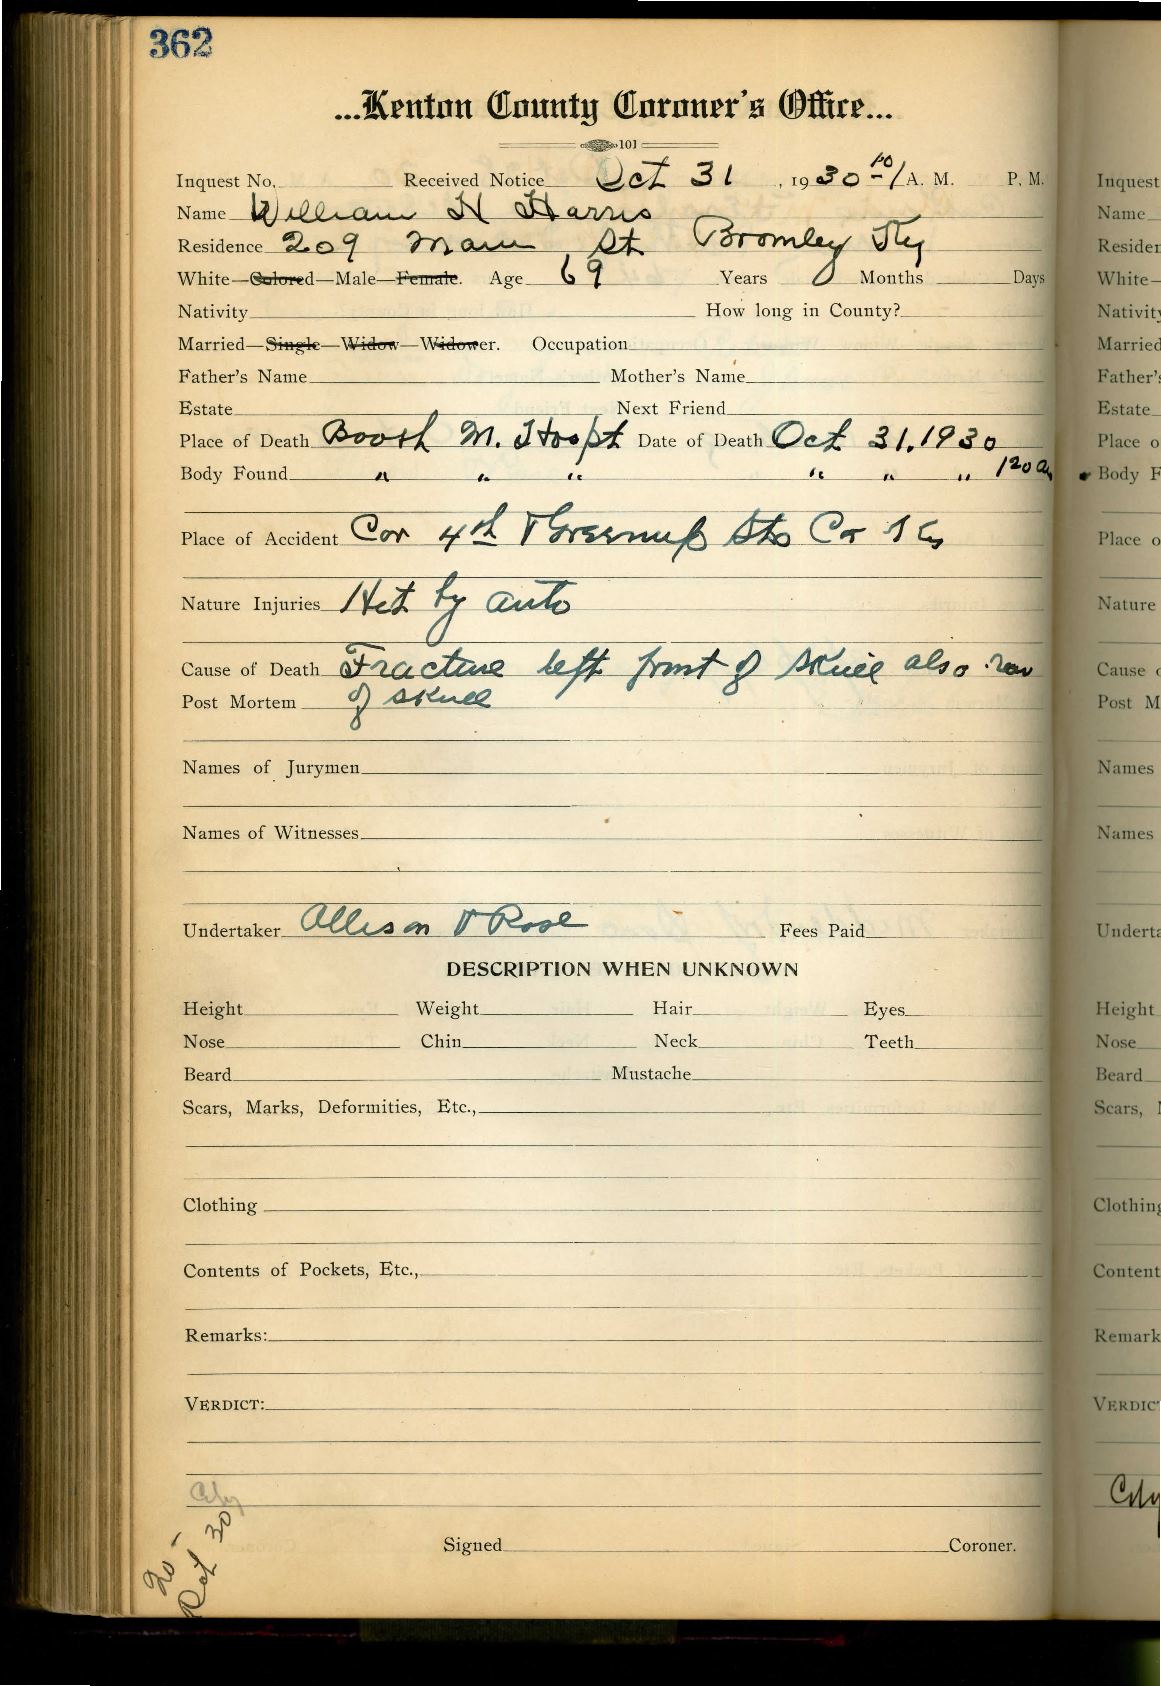 362
...Kenton County Coroner's Office...
101
Inquest No. Received Notice Oct 31, 1930 A. M. P. M.
Name William H Harris
Residence 209 Main St Bromley Ky
White—Colored—Male—Female. Age 69 Years Months Days
Nativity How long in County?
Married—Single—Widow—Widower. Occupation
Father's Name Mother's Name
Estate Next Friend
Place of Death Booth M. Hospt Date of Death Oct 31, 1930
Body Found " " " " " " 120 a
Place of Accident Cor 4th & Greenup Sts Cov Ky
Nature Injuries Hit by auto
Cause of Death Fracture left front of skull also rear
Post Mortem of skull
Names of Jurymen
Names of Witnesses
Undertaker Allison & Rose Fees Paid
DESCRIPTION WHEN UNKNOWN
Height Weight Hair Eyes
Nose Chin Neck Teeth
Beard Mustache
Scars, Marks, Deformities, Etc.,
Clothing
Contents of Pockets, Etc.,
Remarks:
VERDICT:
City
Signed Coroner.
20 -
30
Inquest
Name
Residen
White—
Nativity
Married
Father's
Estate
Place o
Body F
Place o
Nature
Cause o
Post M
Names
Names
Underta
Height
Nose
Beard
Scars,
Clothing
Content
Remark
VERDICT
City